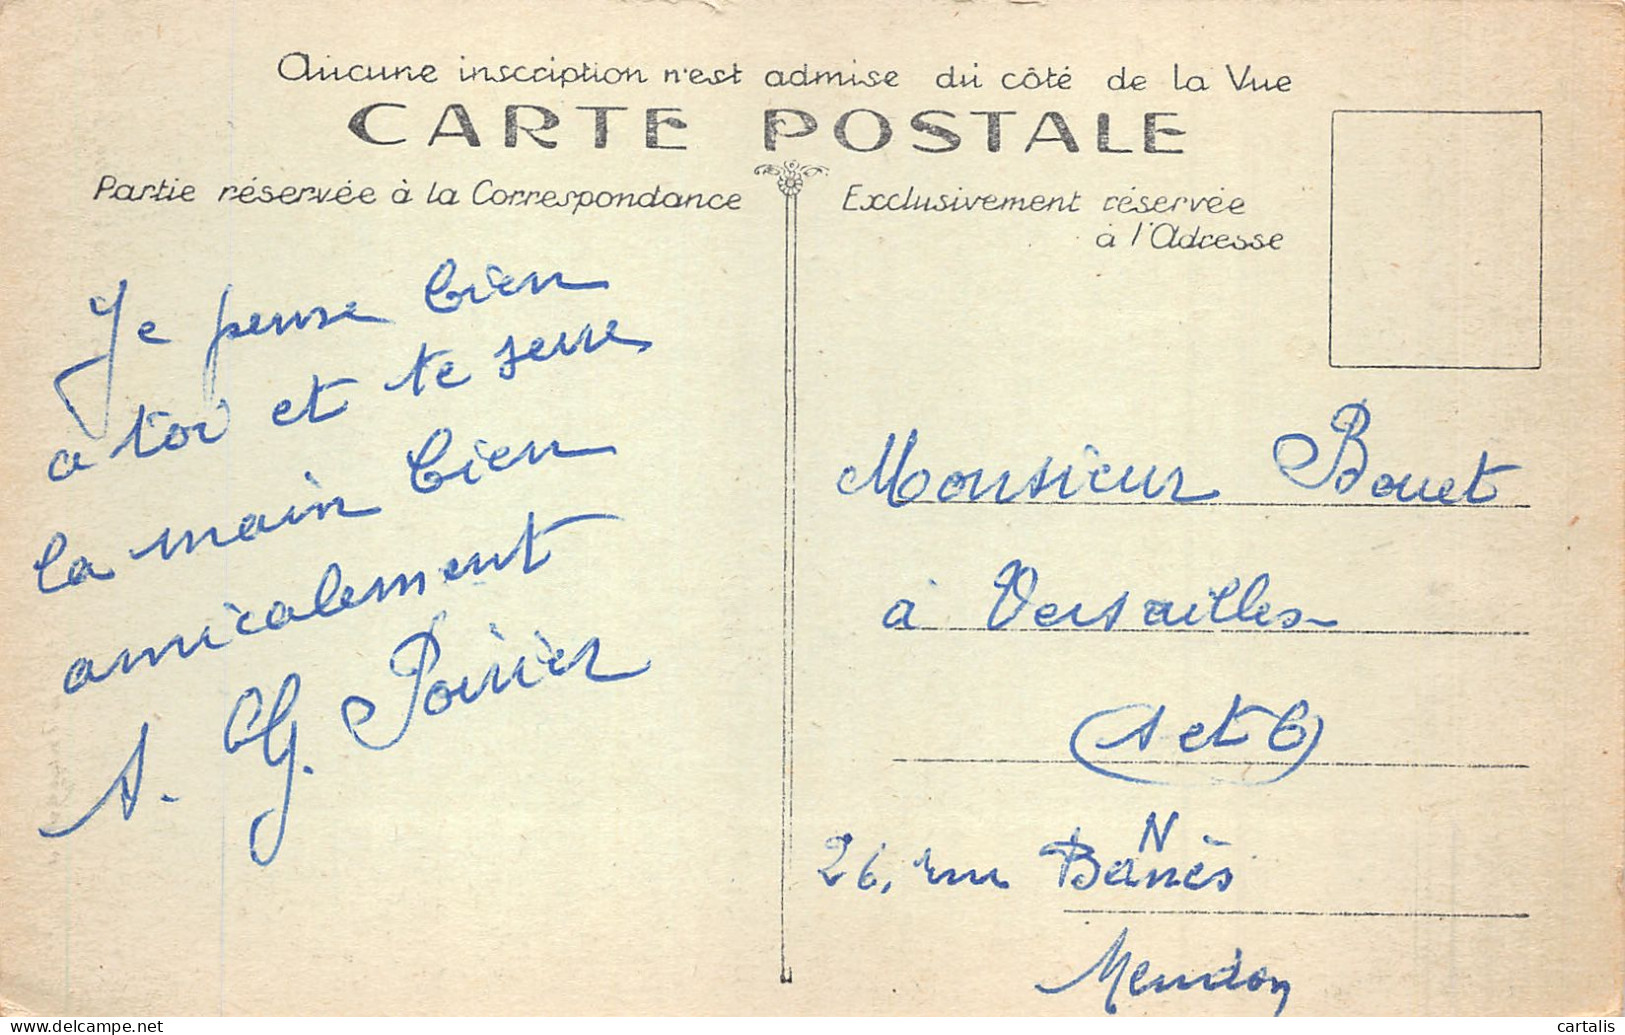 Aucune inscription n'est admise du côté de la Vue
CARTE POSTALE
Partie réservée à la Correspondance
Exclusivement réservée
à l'Adresse
Je pense bien
a toi et te serre
la main bien
amicalement
A. G. Poirier
Monsieur Bouet
à Versailles
(S et O)
26, rue Banès
N
Meudon
delcampe.net
cartalis